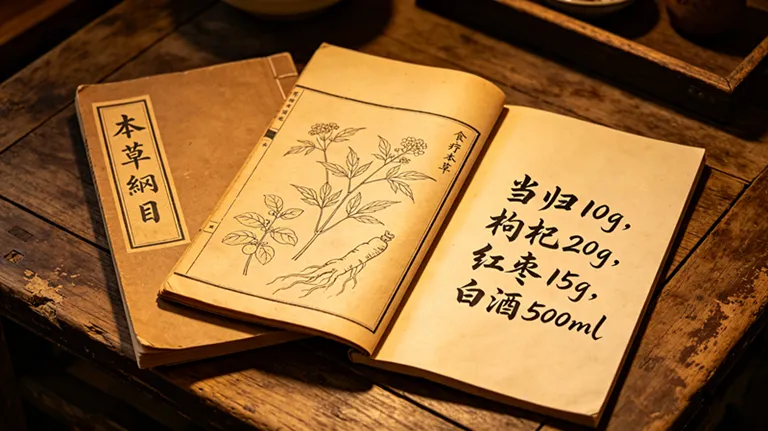 本草綱目
食疗本草
当归10g,
枸杞20g,
红枣15g,
白酒500ml